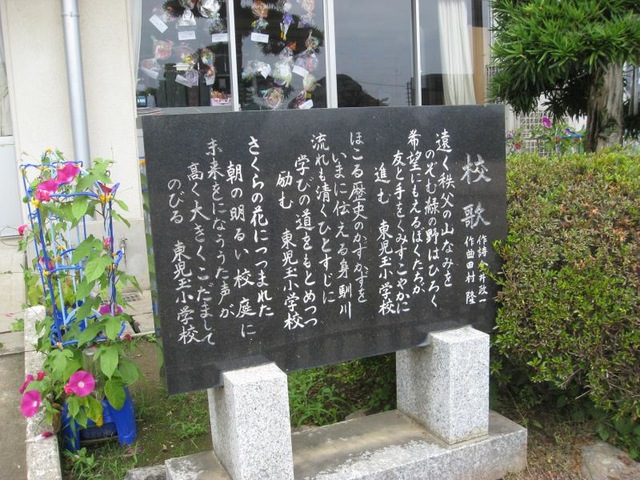 校歌
作詩 金井政一
作曲 田村 隆
遠く秩父の山なみを
のぞむ緑の野はひろく
希望にもえるぼくたちが
友と手をくみすこやかに
進む 東児玉小学校
ほこる歴史のかずかずを
いまに伝える身馴川
流れも清くひとすじに
学びの道をもとめつつ
励む 東児玉小学校
さくらの花につつまれた
朝の明るい校庭に
未来をになううた声が
高く大きくこだまして
のびる 東児玉小学校